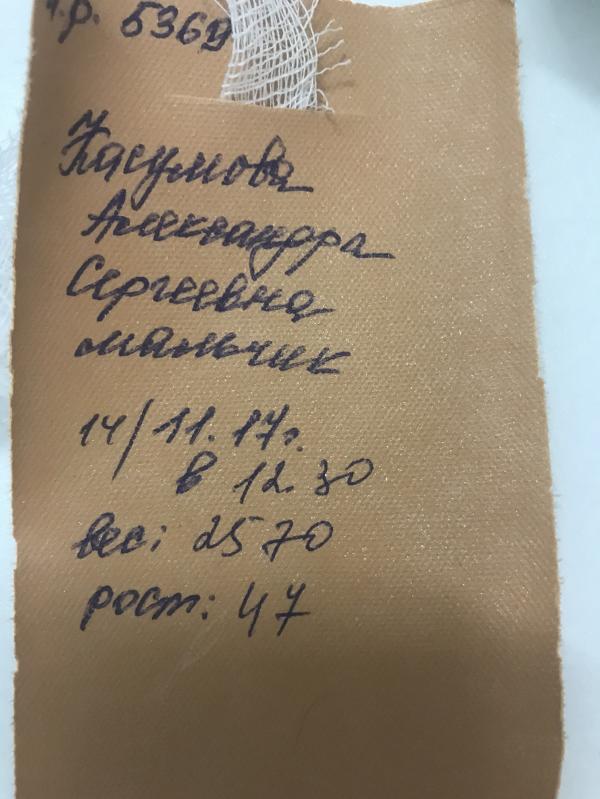 и.р. 5369
Касумова
Александра
Сергеевна
мальчик
14/11.17г.
в 12.30
вес: 2570
рост: 47